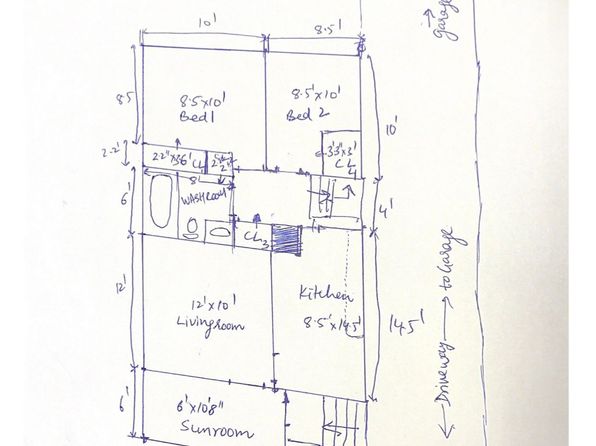 garage
10'
8.5'
8.5
8.5'x10'
Bed1
8.5'x10'
Bed 2
10'
2.2'
2.2"x3.6' CL
2.2'
3'3"x3'
CL
6'
8'
WASHROOM
4'
CL3
12'
12'x10'
Livingroom
Kitchen
8.5'x14.5'
14.5'
Driveway → to Garage
6'
6'x10'8"
Sunroom